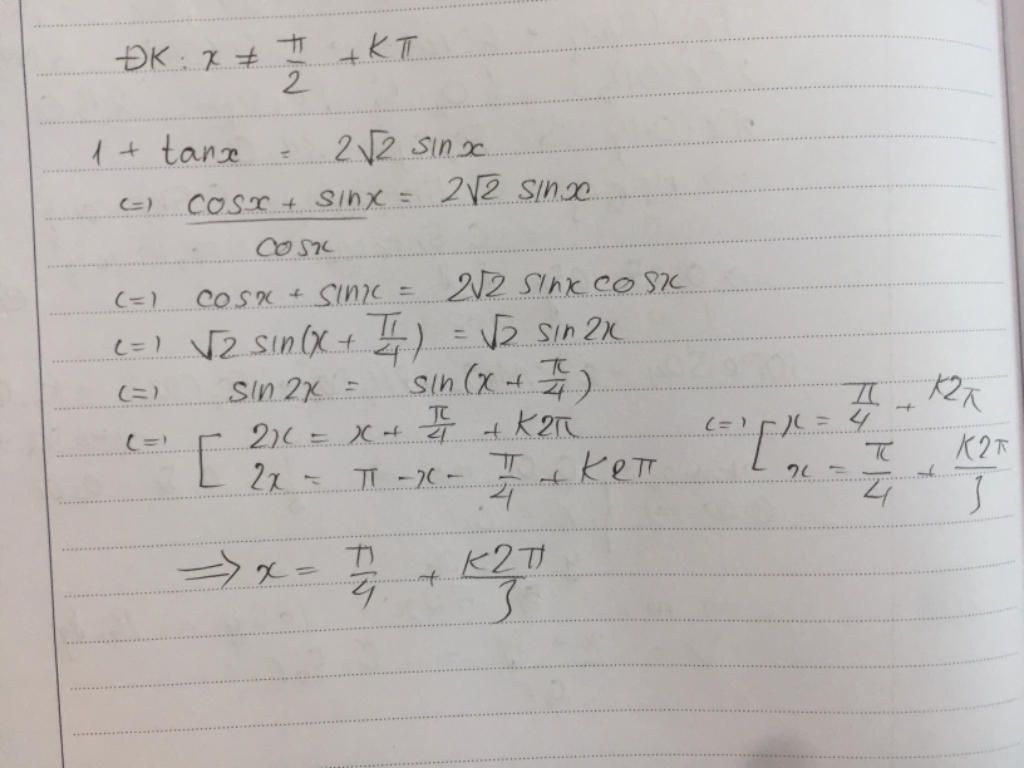 ĐK: x ≠ π/2 + Kπ
1 + tanx = 2√2 sinx
(=) (cosx + sinx)/cosx = 2√2 sinx
(=) cosx + sinx = 2√2 sinx cosx
(=) √2 sin(x + π/4) = √2 sin2x
(=) sin2x = sin(x + π/4)
(=) [ 2x = x + π/4 + K2π (=) [ x = π/4 + K2π
2x = π - x - π/4 + K2π x = π/4 + K2π/3
⇒ x = π/4 + K2π/3